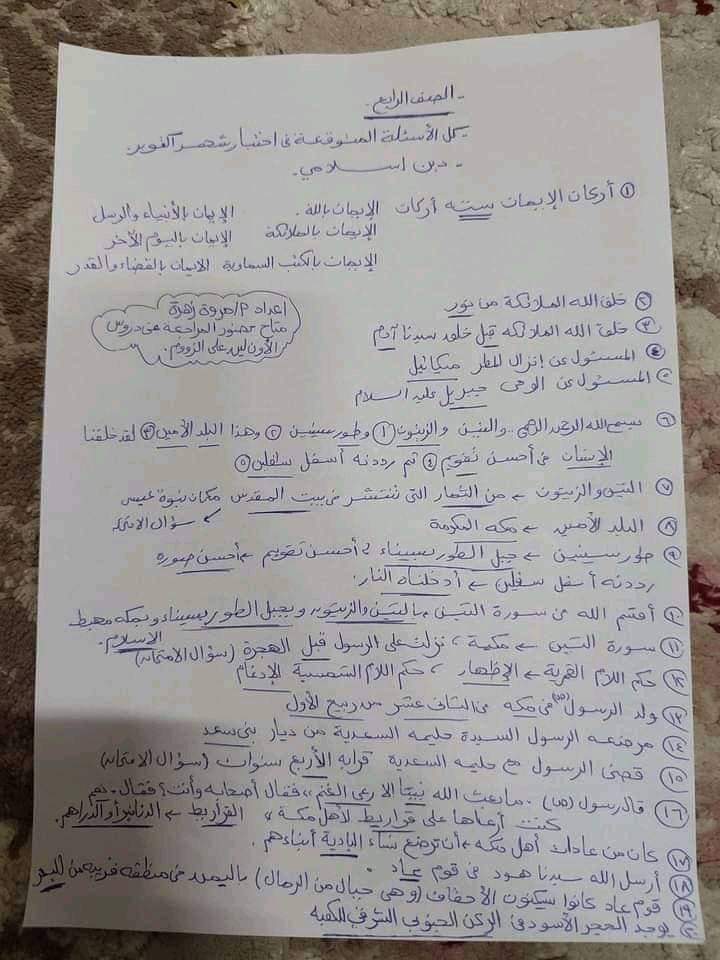 - الصف الرابع.
- كل الأسئلة المتوقعة فى اختبار شهر اكتوبر.
- دين اسلامي.
① أركان الإيمان ستة أركان
الإيمان بالله. الإيمان بالأنبياء والرسل
الإيمان بالملائكة الإيمان باليوم الآخر
الإيمان بالكتب السماوية الايمان بالقضاء والقدر
اعداد P/مروة زهرة
متاح حضور المراجعة من دروس
الأون لين على الزووم.
② خلق الله الملائكة من نور
③ خلق الله الملائكة قبل خلق سيدنا آدم
④ المسئول عن إنزال المطر ميكائيل
⑤ المسئول عن الوحى جبريل عليه السلام
⑥ بسم الله الرحمن الرحيم.. والتين والزيتون ① وطور سينين ② وهذا البلد الأمين ③ لقد خلقنا
الإنسان فى أحسن تقويم ④ ثم رددنه أسفل سفلين ⑤
⑦ التين والزيتون ← من الثمار التى تنتشر فى بيت المقدس مكان نبوة عيسى
سؤال الامتحان
⑧ البلد الأمين ← مكة المكرمة
⑨ طور سينين ← جبل الطور بسيناء، أحسن تقويم ← أحسن صورة
رددنه أسفل سفلين ← أدخلناه النار.
⑩ أقسم الله فى سورة التين بالتين والزيتون وبجبل الطور بسيناء وبمكة مهبط
الإسلام.
⑪ سورة التين ← مكية، نزلت على الرسول قبل الهجرة (سؤال الامتحان)
⑫ حكم اللام القمرية ← الإظهار، حكم اللام الشمسية الإدغام
⑬ ولد الرسول (ص) فى مكة فى الثانى عشر من ربيع الأول
⑭ مرضعه الرسول السيدة حليمه السعدية من ديار بنى سعد
⑮ قضى الرسول مع حليمه السعدية قرابه الأربع سنوات (سؤال الامتحان)
⑯ قال رسول (ص). ما بعث الله نبيا الا رعى الغنم، فقال أصحابه وأنت؟ فقال. نعم
كنت أرعاها على قراريط لأهل مكة، القراريط ← الدنانير أو الدراهم.
⑰ كان من عادات أهل مكه ← أن ترضع نساء البادية أبناءهم.
⑱ أرسل الله سيدنا هود فى قوم عاد
⑲ قوم عاد كانوا يسكنون الأحقاف (وهى جبال من الرمال) باليمن فى منطقه قريبه من البحر
⑳ يوجد الحجر الأسود فى الركن الجنوبى الشرقى للكعبه